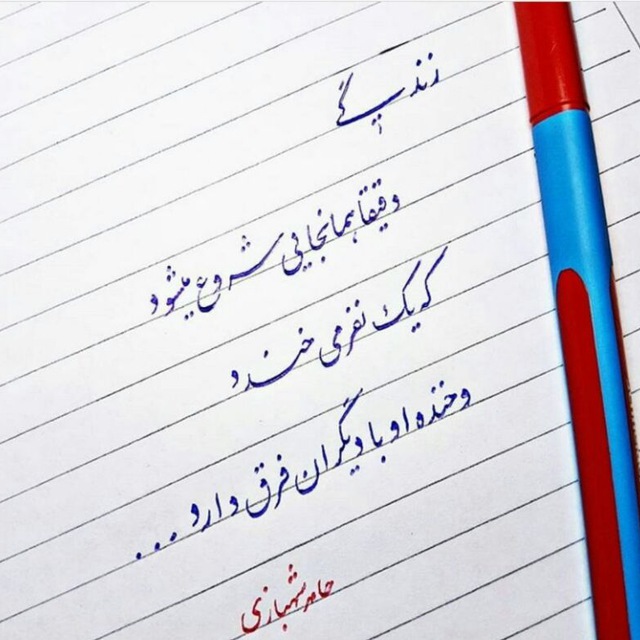 زندگی
دقیقا همانجایی شروع میشود
که یک نفر می خندد
و خنده او با دیگران فرق دارد...
حامد شهبازی